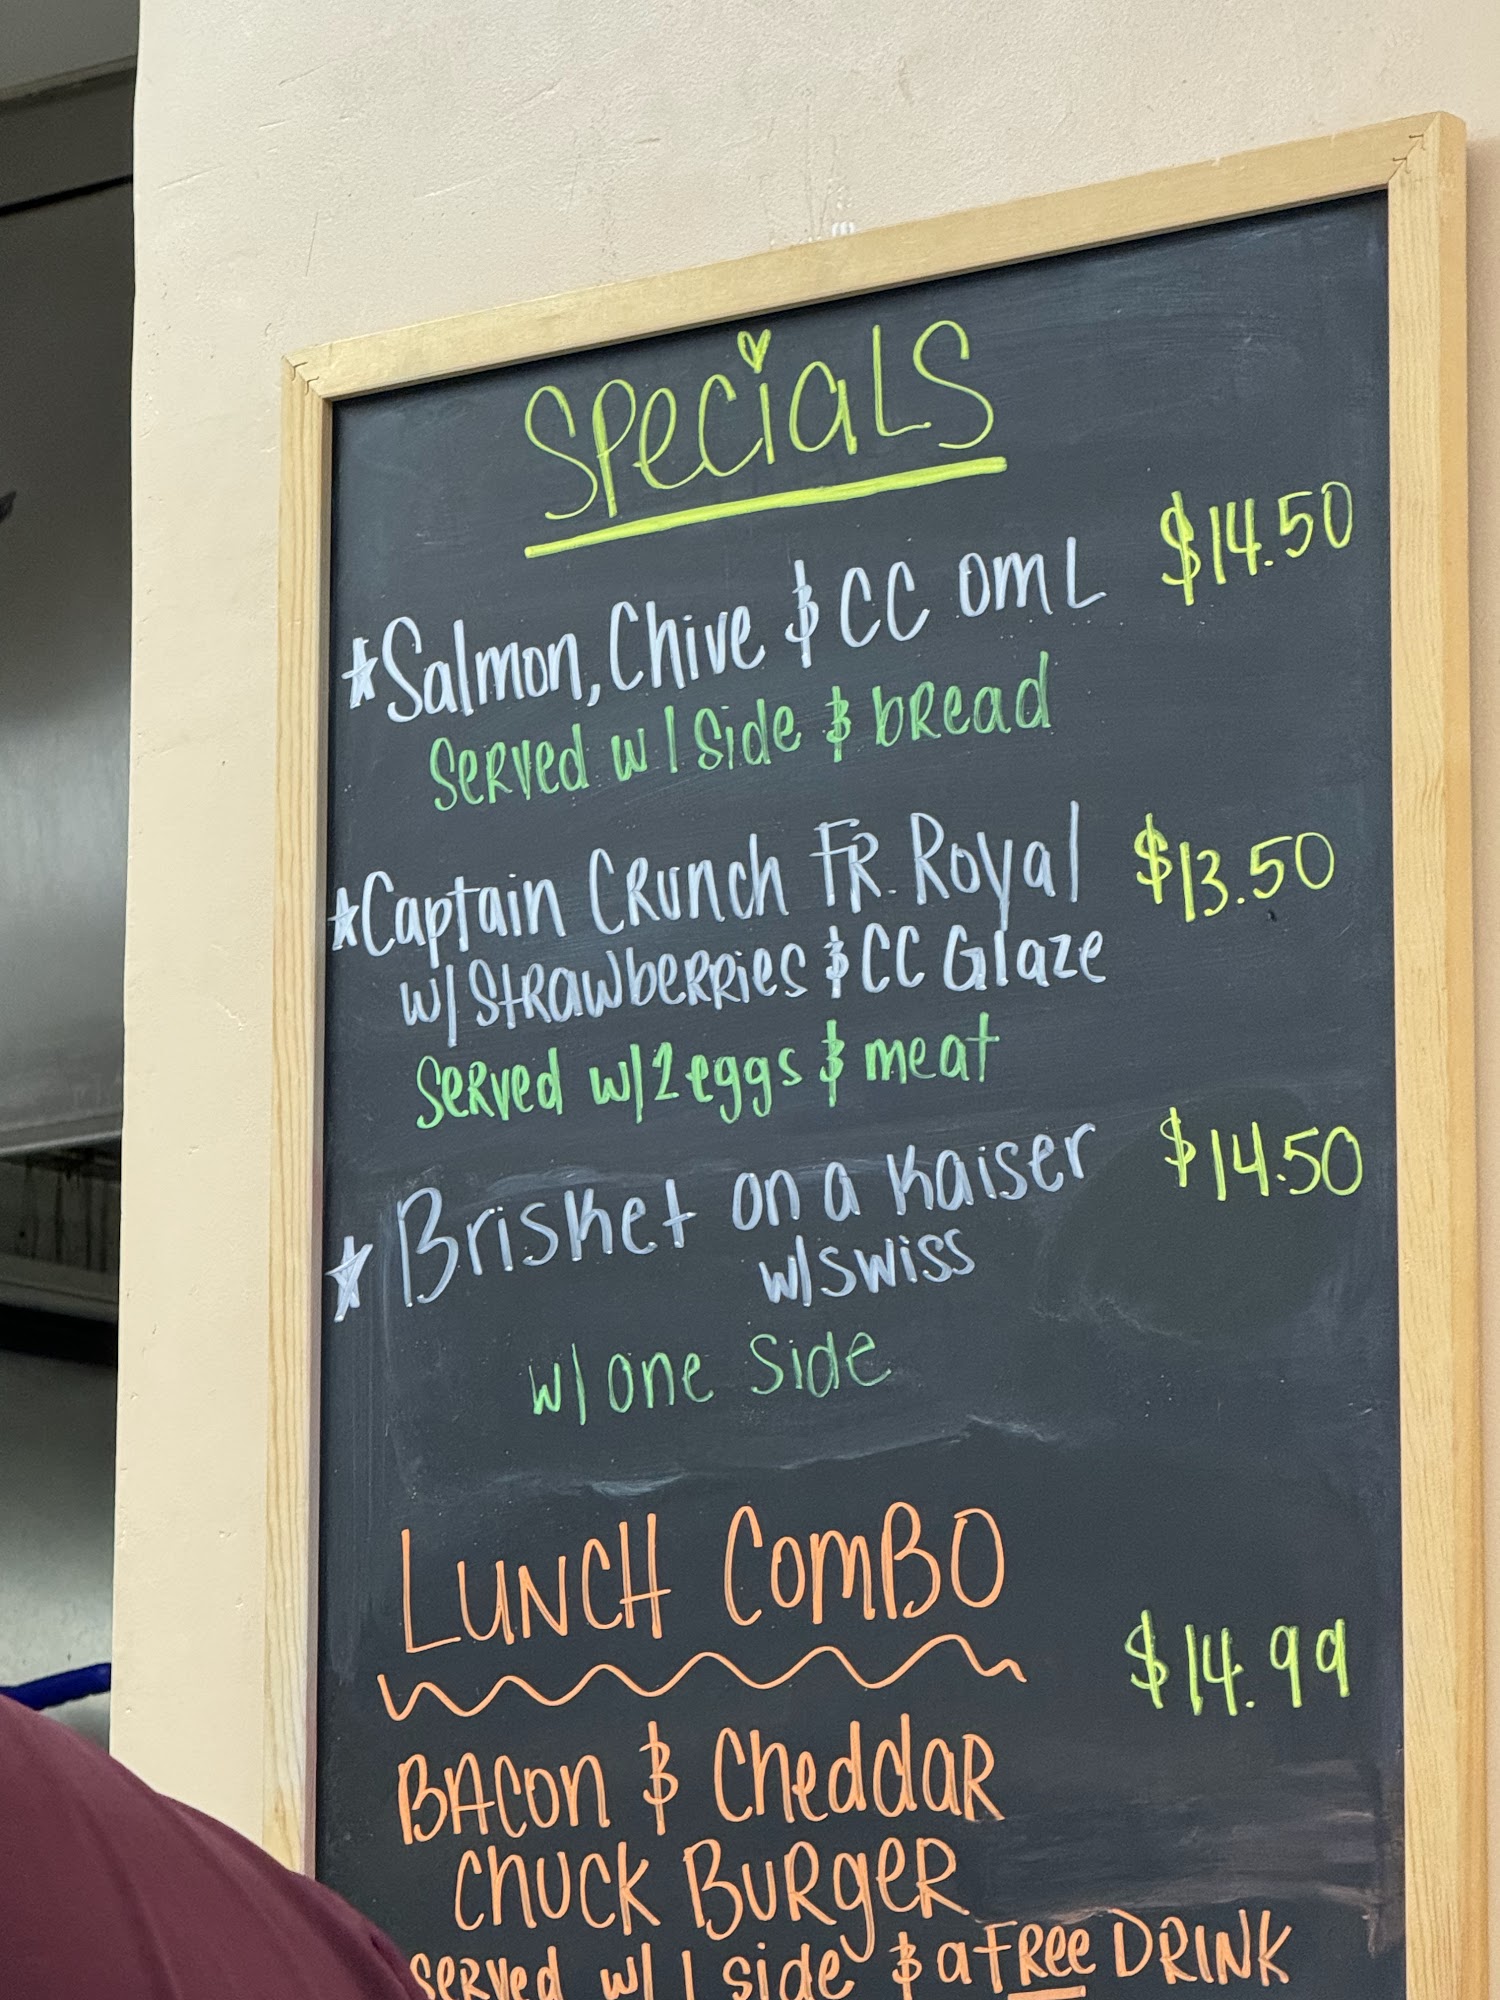 Specials
Salmon, Chive & CC OML $14.50
Served w/ Side & bread
Captain Crunch FR. Royal $13.50
w/ Strawberries & CC Glaze
Served w/ 2 eggs & meat
Brisket on a Kaiser $14.50
w/ Swiss
w/ one Side
LUNCH COMBO
$14.99
Bacon & Cheddar
Chuck Burger
Served w/ 1 side & a FRee DRINK